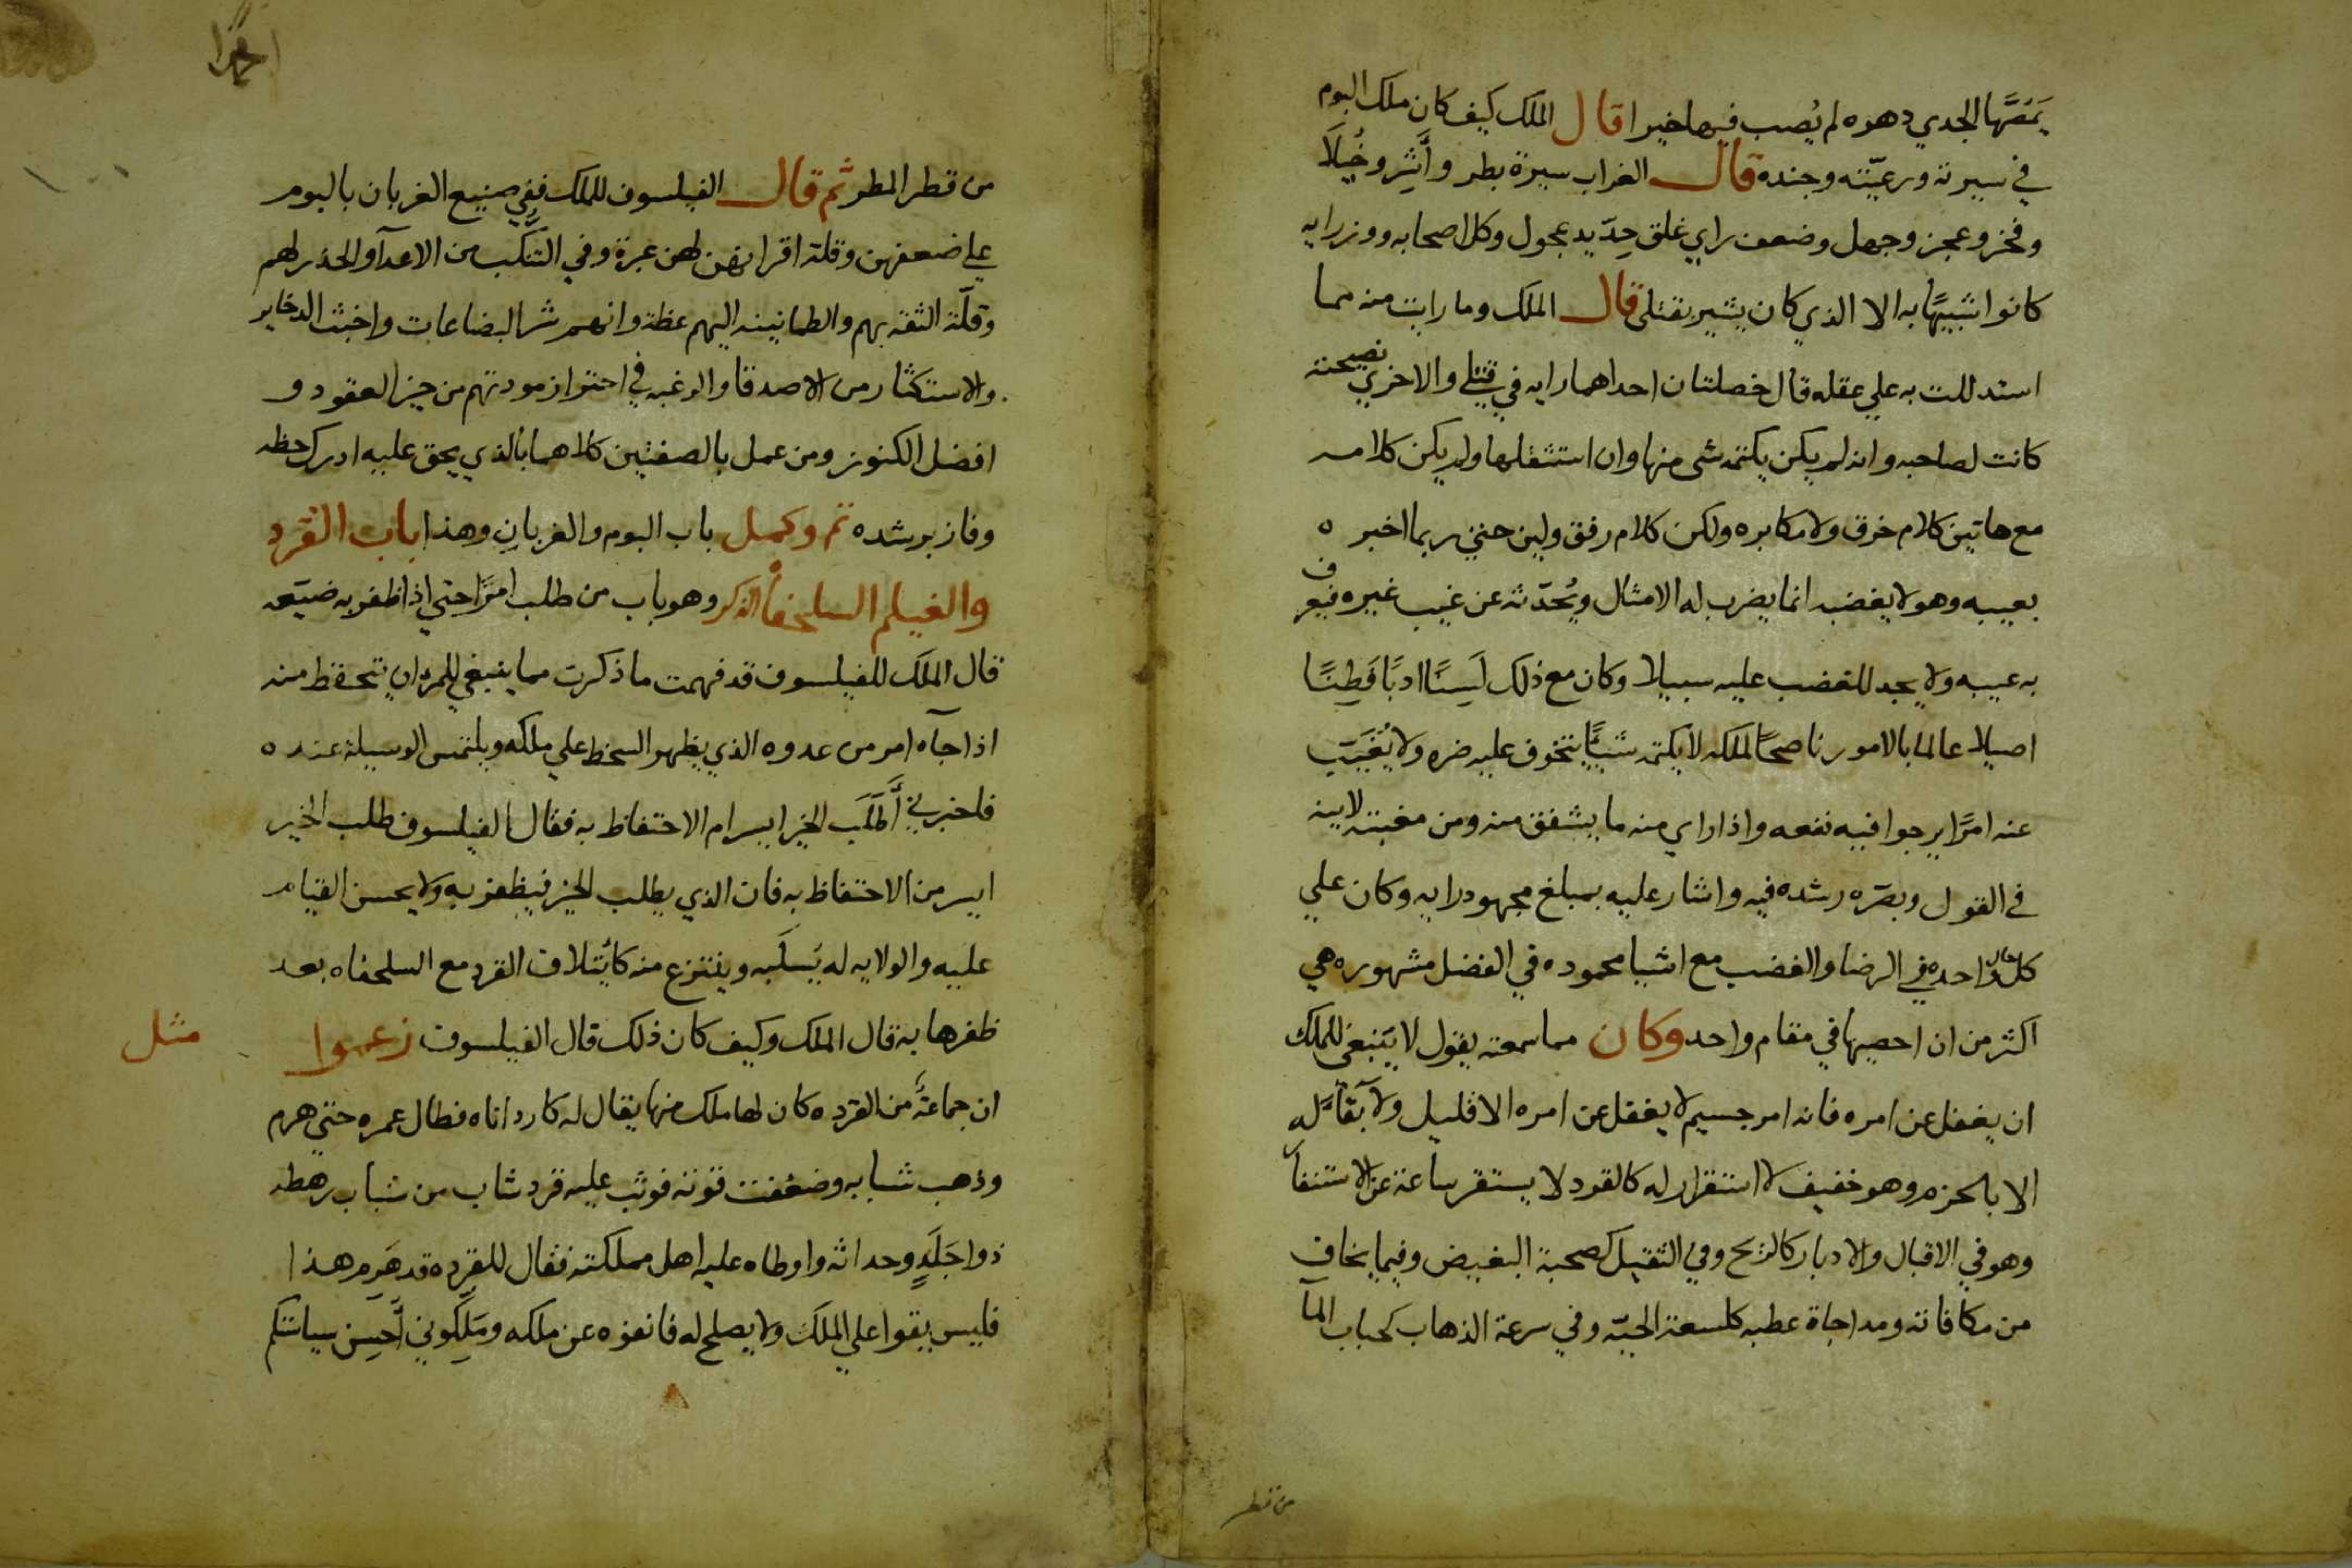 يَمَصَّها الجدي دهره لم يُصب فيها خيرا قال الملك كيف كان ملك البوم
في سيرته ورعيّته وجنده قال الغراب سيرة بطر وأَشِر وخُيَلَا
وفخر وعجز وجهل وضعف راي غلق حِدّيد عجول وكل اصحابه ووزرايه
كانوا شبيهًا به الا الذي كان يشير بقتلى قال الملك وما رايت منه مما
استدللت به علي عقله قال خصلتان احداهما رايه في قتلي والاخري نصيحته
كانت لصاحبه وانه لم يكن يكتمه شى منها وان استثقلها ولم يكن كلامه
مع هاتين كلام خرق ولا مكابره ولكن كلام رفق ولين حتي ربما اخبره
بعيبه وهو لا يغضبه انما يضرب له الامثال ويُحدّثه عن غيب غيره فيعرف
به عيبه ولا يجد للغضب عليه سبيلا وكان مع ذلك لَسِنًا ادبًا فَطِنًا
اصيلا عالما بالامور ناصحًا لملكه لا يكتمه شيئًا يتخوف عليه ضره ولا يُغَيّب
عنه امرًا يرجوا فيه نفعه واذا راي منه ما يشفق منه ومن مغبته لاينه
في القول وبصّره رشده فيه واشار عليه بمبلغ مجهود رايه وكان علي
كل حال واحده في الرضا والغضب مع اشيا محموده في الفضل مشهوره هي
اكثر من ان احصيها في مقام واحد وكان مما سمعته يقول لا يَنبغي للملك
ان يغفل عن امره فانه امر جسيم لا يغفل عن امره الا قليل ولا بَقآءَ له
الا بالحزم وهو خفيف لا استقرار له كالقرد لا يستقر ساعة عن الاستنفار
وهو في الاقبال والادبار كالريح وفي الثقيل كصحبة البغيض وفيما يخاف
من مكافاته ومداجاة عطبه كلسعة الحيّه وفي سرعة الذهاب كحباب المآ
من قطر
من قطر المطر ثم قال الفيلسوف للملك ففي صنيع الغربان بالبوم
علي ضعفهن وقلة اقرانهن لهن عبرة وفي التنَكّب من الاعدآ والحذر لهم
وقلّة الثقه بهم والطمانينه اليهم عظة وانهم شر البضاعات واخبث الدخاير
والاستكثار من الاصدقا والرغبه في احتواز مودتهم من خير العقود و
افضل الكنوز ومن عمل بالصفتين كلاهما بالذي يحق عليه ادرك حظه
وفاز برشده تم وكمل باب البوم والغربان وهذا باب القرد
والغيلم السلحفاه الذكر وهو باب من طلب امرًا حتي اذا ظفر به ضيّعه
قال الملك للفيلسوف قد فهمت ما ذكرت مما ينبغي للمرء ان يتحفظ منه
اذا جآه امر من عدوه الذي يظهر السخط علي ملكه ويلتمس الوسيلة عنده
فاخبرني أَطَلَب الخير ايسر ام الاحتفاظ به فقال الفيلسوف طلب الخير
ايسر من الاحتفاظ به فان الذي يطلب الخير فيظفر به ولا يحسن القيام
عليه والولايه له يُسلَبه وينتزع منه كائتلاف القرد مع السلحفاه بعد
ظفرها به قال الملك وكيف كان ذلك قال الفيلسوف زعموا
مثل
ان جماعةً من القرده كان لها ملك منها يقال له كارداناه فطال عمره حتي هرم
وذهب شبابه وضعفت قوته فوثب عليه قرد شاب من شباب رهطه
ذوا جَلَدٍ وحداثه واوطاه عليه اهل مملكته فقال للقرده قد هَرِم هذا
فليس يقوا علي الملك ولا يصلح له فانفوه عن ملكه ومَلِّكوني أُحسِن سياستكم